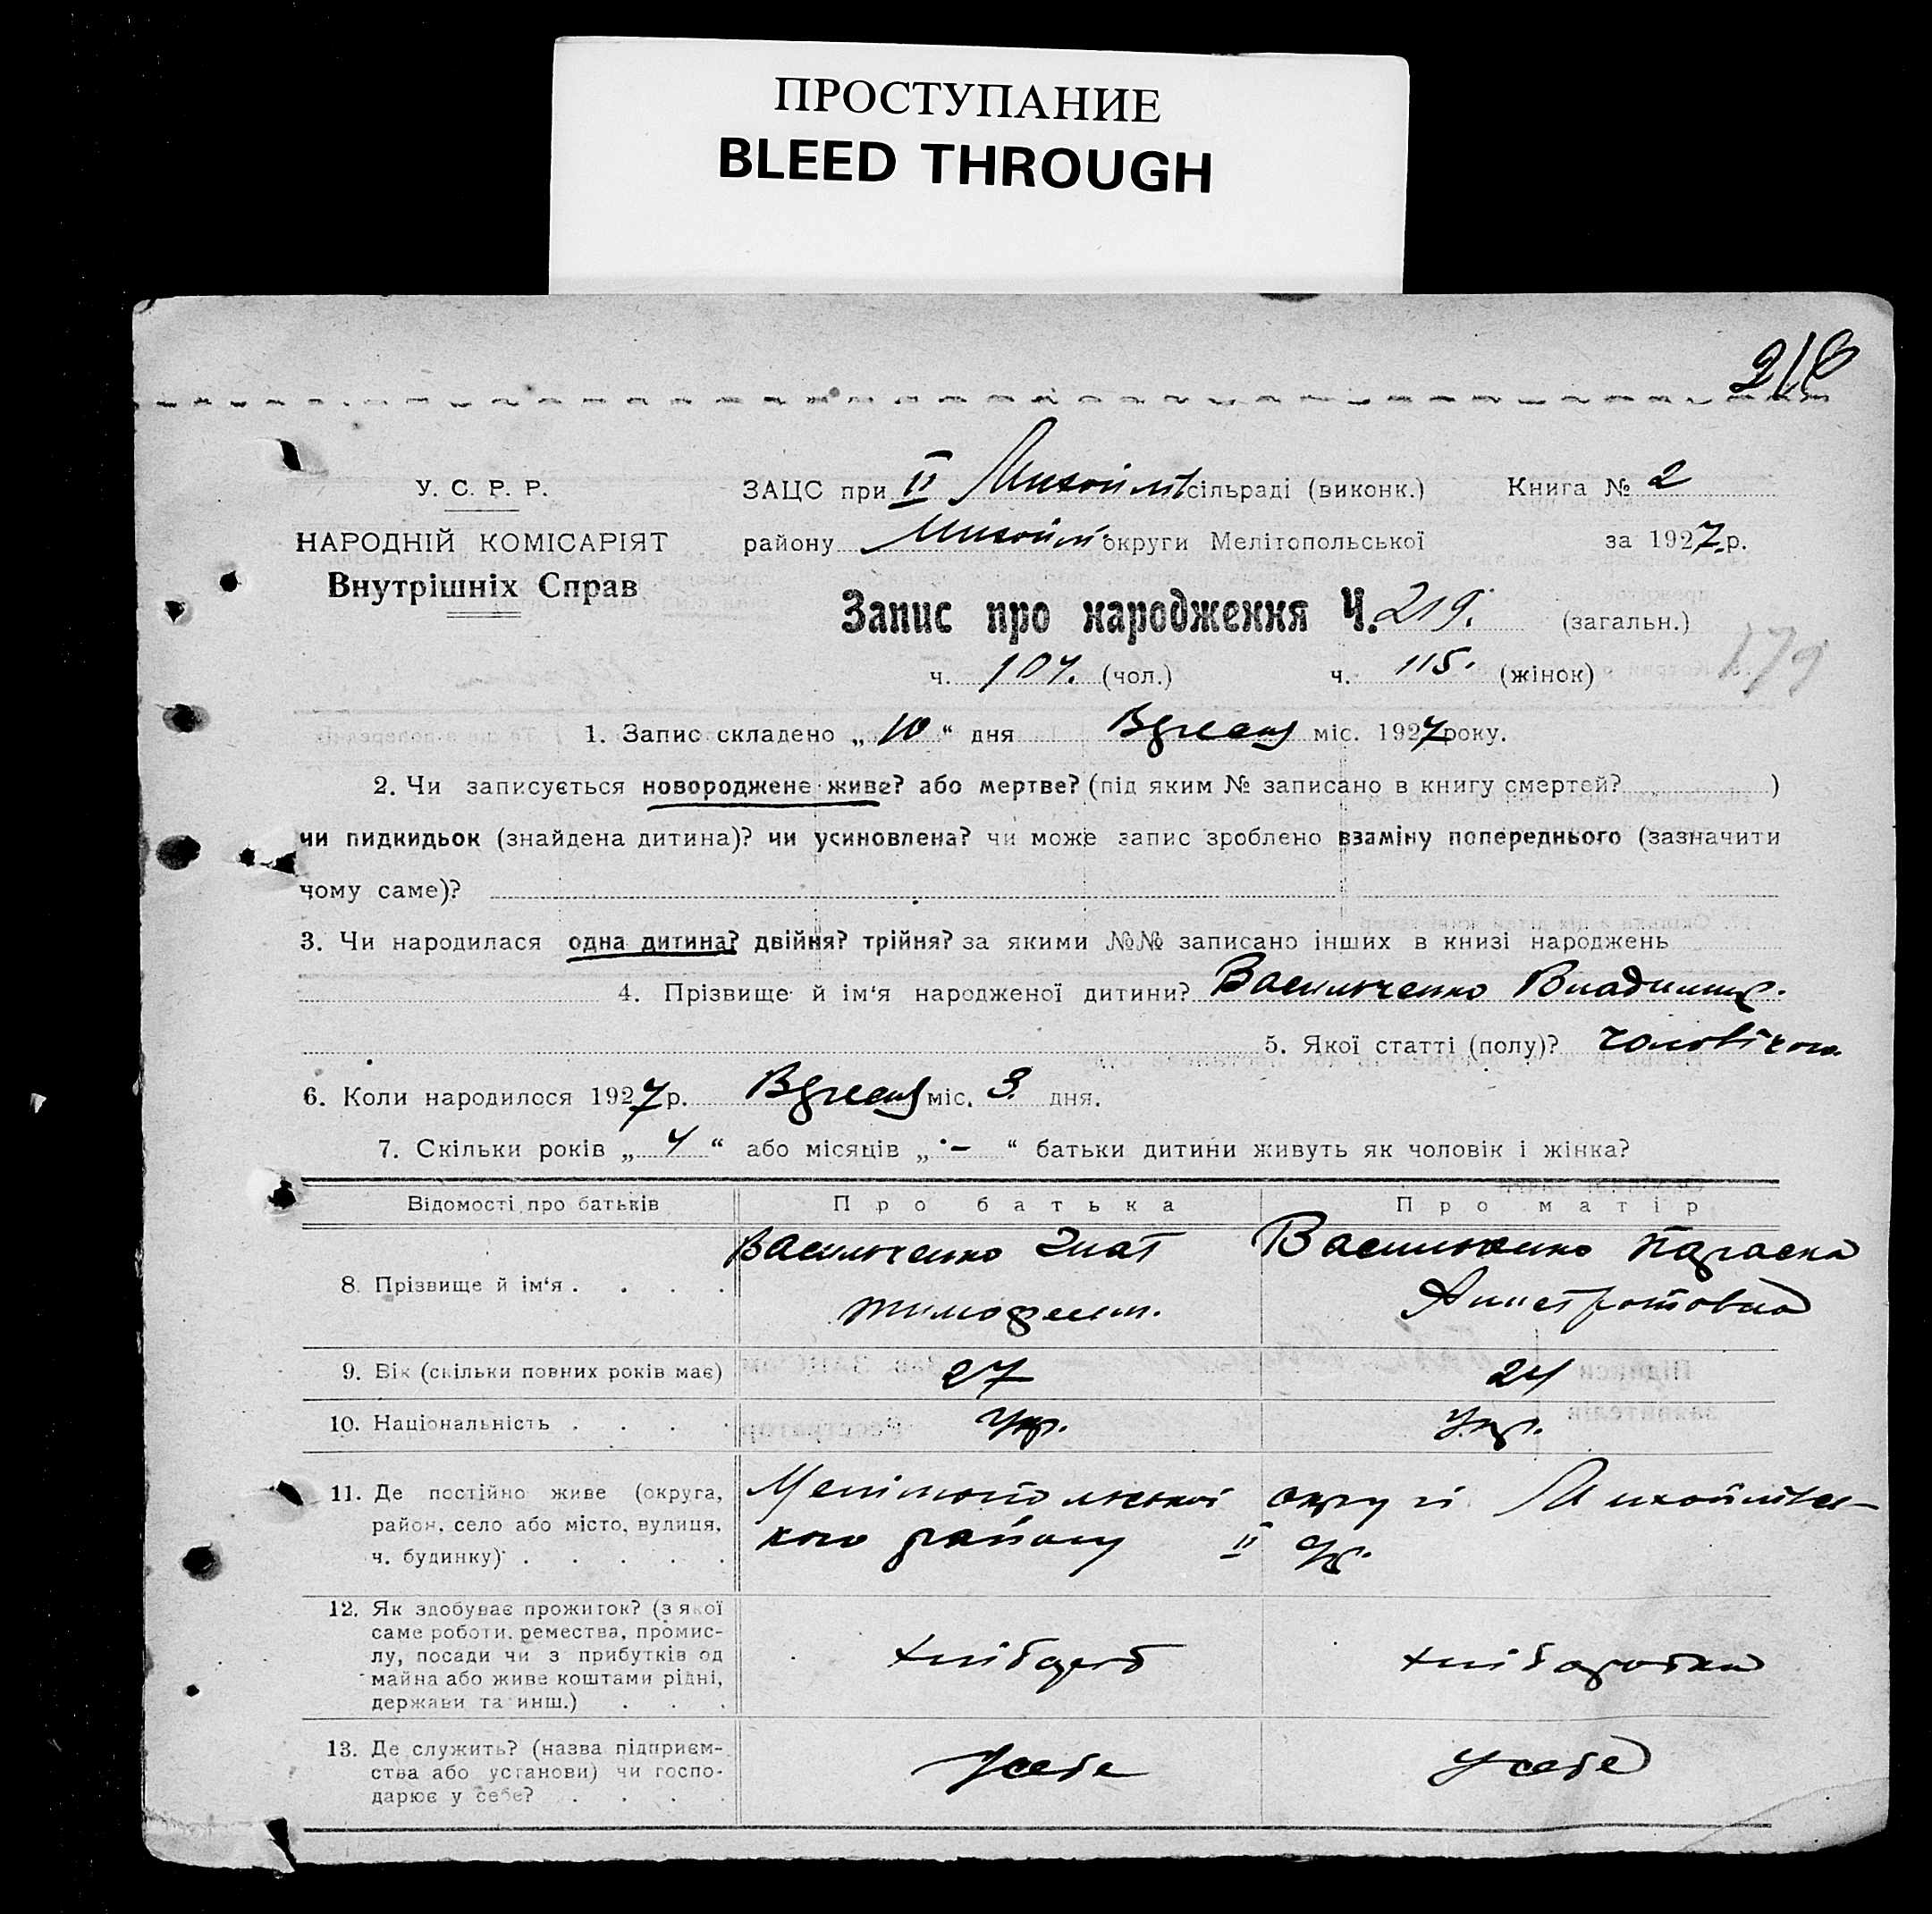 ПРОСТУПАНИЕ
BLEED THROUGH
У. С. Р. Р.
НАРОДНІЙ КОМІСАРІЯТ
Внутрішніх Справ
ЗАЦС при II Михайлів сільраді (виконк.) Книга № 2
району округи Мелітопольської за 1927 р.
Запис про народження Ч. 219. (загальн.)
179
ч. 104. (чол.) ч. 115. (жінок)
1. Запис складено „ 10 “ дня міс. 1927 року.
2. Чи записується новороджене живе? або мертве? (під яким № записано в книгу смертей? )
чи пидкидьок (знайдена дитина)? чи усиновлена? чи може запис зроблено взаміну попереднього (зазначити
чому саме)?
3. Чи народилася одна дитина? двійня? трійня? за якими №№ записано інших в книзі народжень
4. Прізвище й ім‘я народженої дитини? Васильченко Владимир.
5. Якої статті (полу)?
6. Коли народилося 1927 р. міс. 3. дня.
7. Скільки років „ 4 “ або місяців „ – “ батьки дитини живуть як чоловік і жінка?
Відомості про батьків Про батька Про матір
Васильченко Гнат Васильченко Параска
8. Прізвище й ім‘я . . . .
9. Вік (скільки повних років має) 27 24
10. Національність . . . . Укр. Укр.
11. Де постійно живе (округа, Мелітопольської округи Михайлівсь-
район, село або місто, вулиця, кого району II
ч. будинку) . . . . .
12. Як здобуває прожиток? (з якої
саме роботи, ремества, промис-
лу, посади чи з прибутків од хлібороб хліборобка
майна або живе коштами рідні,
держави та инш.) . . .
13. Де служить? (назва підприєм-
ства або установи) чи госпо- у себе у себе
дарює у себе? . . . .